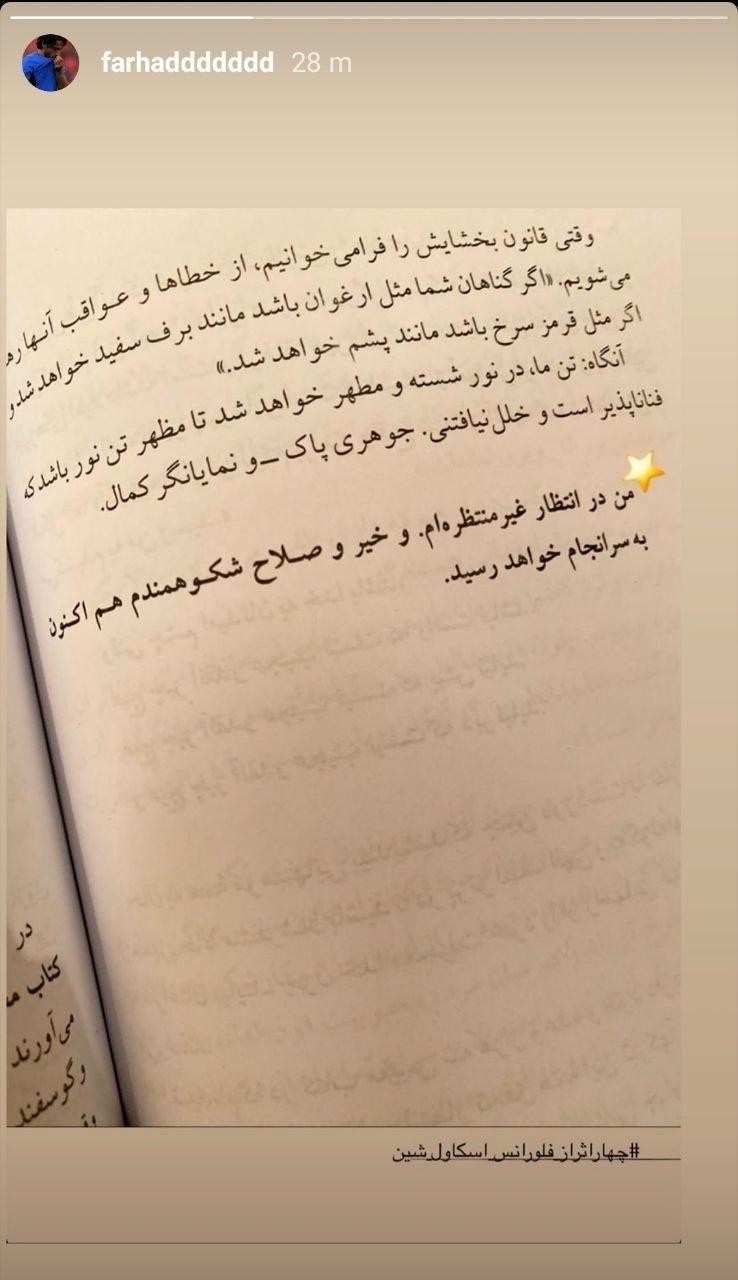 farhaddddddd 28 m
وقتی قانون بخشایش را فرامی‌خوانیم، از خطاها و عواقب آنها
می‌شویم. «اگر گناهان شما مثل ارغوان باشد مانند برف سفید خواهد شد و
اگر مثل قرمز سرخ باشد مانند پشم خواهد شد.»
آنگاه: تن ما، در نور شسته و مطهر خواهد شد تا مظهر تن نور باشد که
فناناپذیر است و خلل‌نیافتنی. جوهری پاک ــ و نمایانگر کمال.
من در انتظار غیرمنتظره‌ام. و خیر و صلاح شکوهمندم هم اکنون
به سرانجام خواهد رسید.
در
کتاب
می‌آورند
وگوسفند
#چهاراثراز_فلورانس_اسکاول_شین